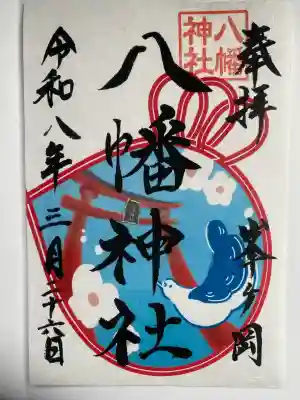 奉拝
峯ヶ岡
八幡
神社
八幡神社
令和八年三月二十六日